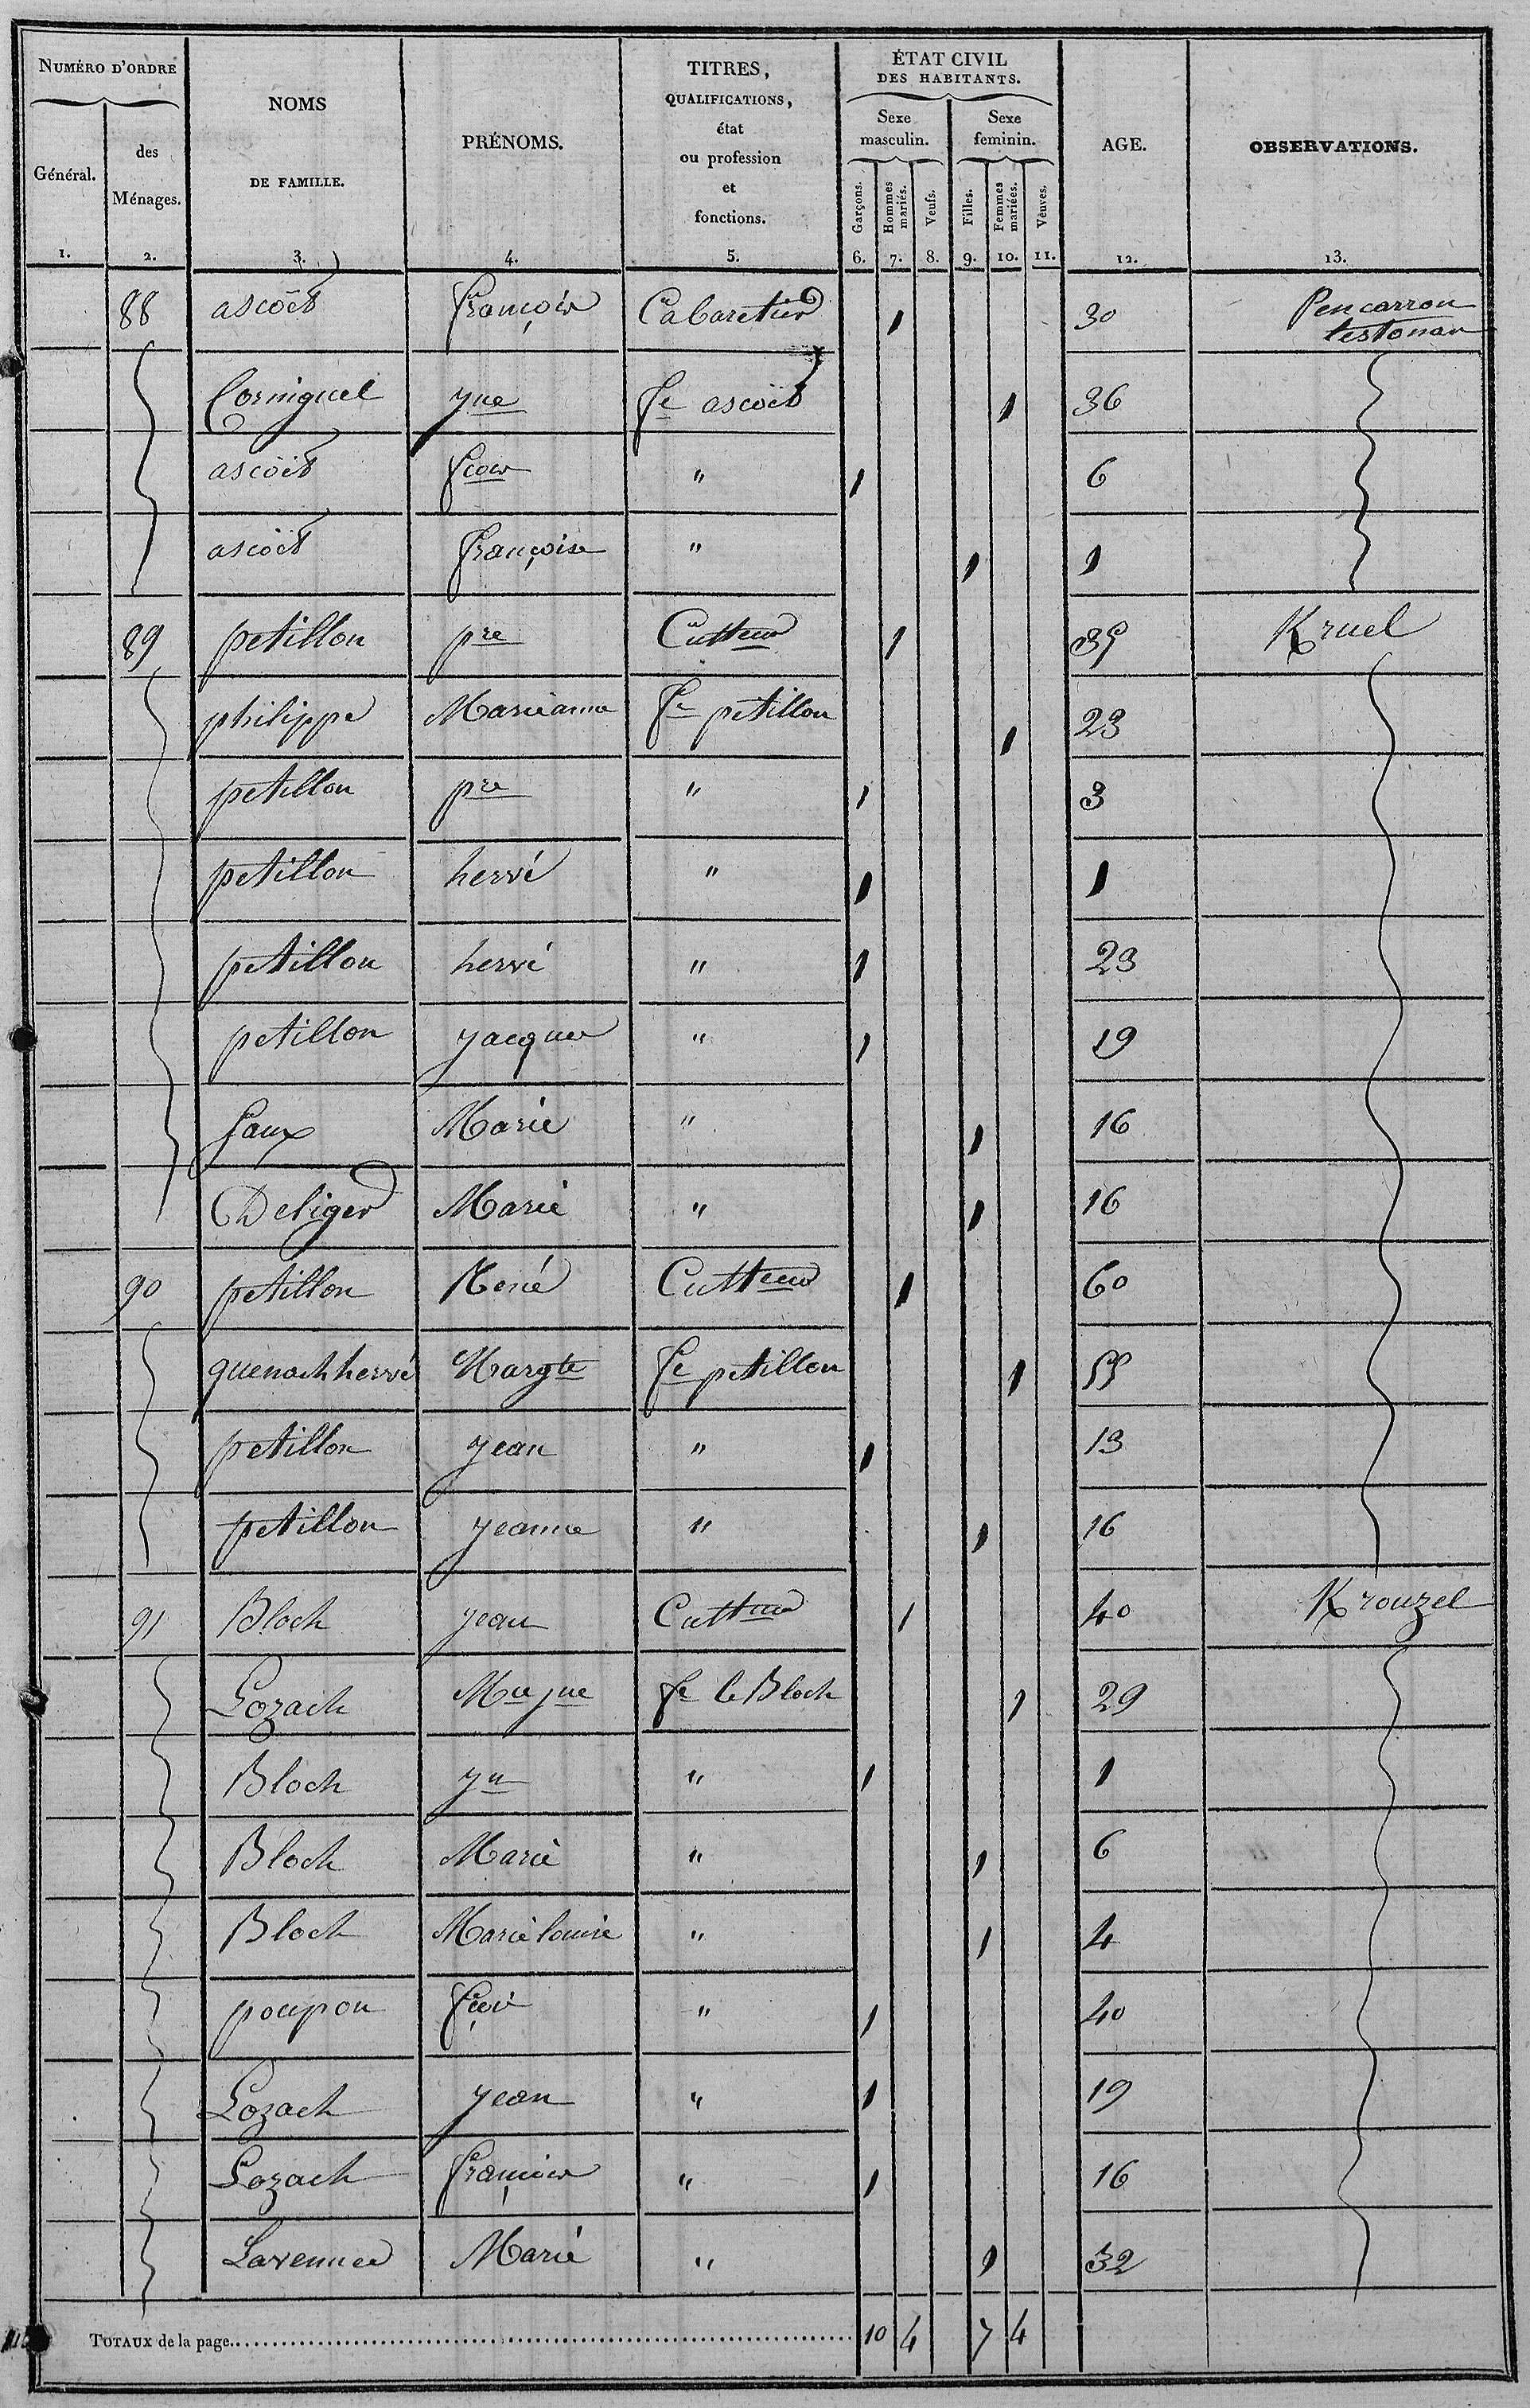 NUMÉRO D'ORDRE
Général.
des
Ménages.
NOMS
DE FAMILLE.
PRÉNOMS.
TITRES,
QUALIFICATIONS,
état
ou profession
et
fonctions.
ÉTAT CIVIL
DES HABITANTS.
Sexe
masculin.
Sexe
feminin.
Garçons.
Hommes
mariés.
Veufs.
Filles.
Femmes
mariées.
Veuves.
AGE.
OBSERVATIONS.
1. 2. 3. 4. 5. 6. 7. 8. 9. 10. 11. 12. 13.
88 ascoët françois Cabaretier 1 30 Pencarron
testonan
Corniguel yne fe ascoët 1 36
ascoët fcois " 1 6
ascoët françoise " 1 1
89 petillon pre Cultteur 1 35 Kruel
philippe Marieanne fe petillon 1 23
petillon pre " 1 3
petillon hervé " 1 1
petillon hervé " 1 23
petillon yacques " 1 19
faux Marie " 1 16
Deliger Marie " 1 16
90 petillon René Cultteur 1 60
quenach hervé Margte fe petillon 1 55
petillon yean " 1 13
petillon yeanne " 1 16
91 Bloch yean Cultteur 1 40 Krouzel
Lozach Mie yne fe le Bloch 1 29
Bloch yn " 1 1
Bloch Marie " 1 6
Bloch Marie louise " 1 4
poupon " 1 40
Lozach yean " 1 19
Lozach françois " 1 16
Marie " 1 32
TOTAUX de la page. 10 4 7 4